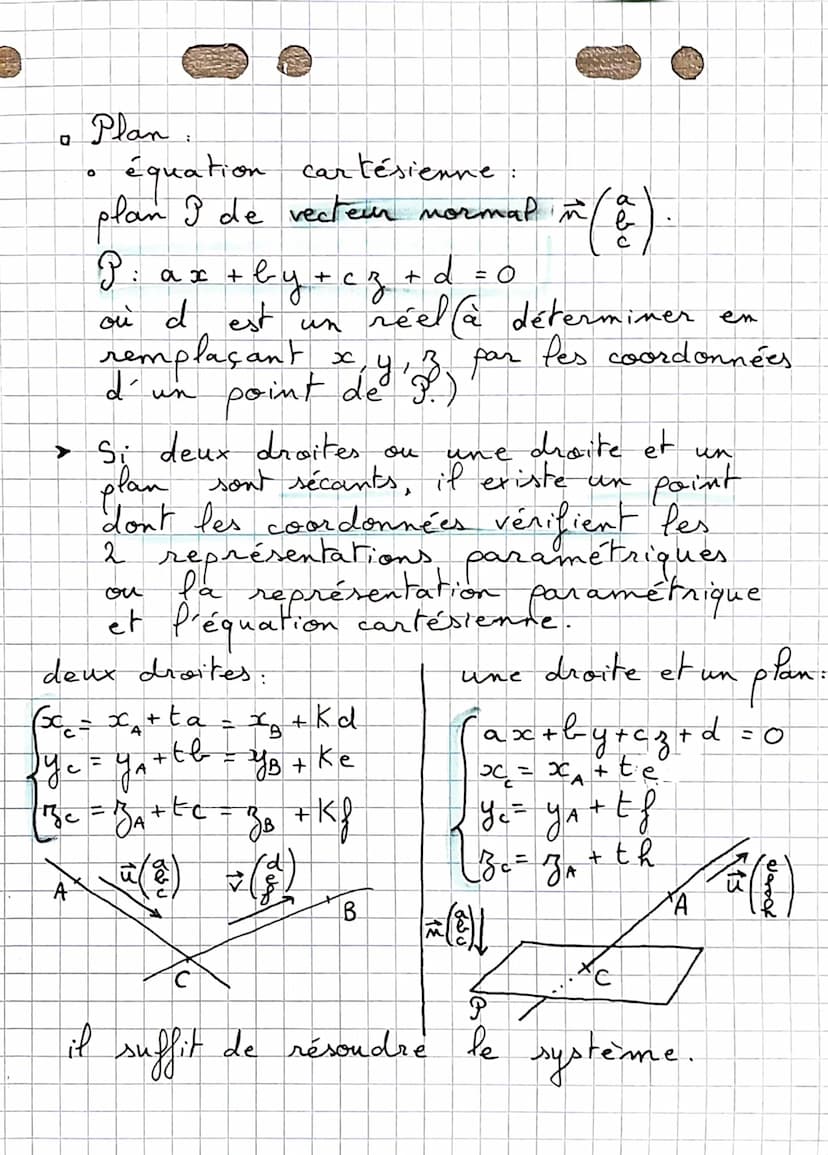 ▫ Plan :
• équation cartésienne :
plan P de vecteur normal n⃗ (a b c).
P : ax + by + cz + d = 0
où d est un réel (à déterminer en
remplaçant x, y, z par les coordonnées
d'un point de P.)
➤ Si deux droites ou une droite et un
plan sont sécants, il existe un point
dont les coordonnées vérifient les
2 représentations paramétriques
ou la représentation paramétrique
et l'équation cartésienne.
deux droites :
{ x_C = x_A + ta = x_B + Kd
y_C = y_A + tb = y_B + Ke
z_C = z_A + tc = z_B + Kf
A
u⃗ (a b c)
v⃗ (d e f)
B
C
une droite et un plan :
{ ax + by + cz + d = 0
x_C = x_A + te
y_C = y_A + tf
z_C = z_A + th
n⃗ (a b c)
A
u⃗ (e f h)
C
P
il suffit de résoudre le système.